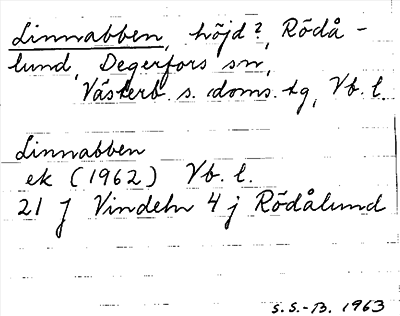 Linnabben, höjd?, Rödå-
lund, Degerfors sn,
Västerb. s. doms. tg, Vb. l.
Linnabben
ek (1962) Vb. l.
21 J Vindeln 4 j Rödålund
S.S.-B. 1963